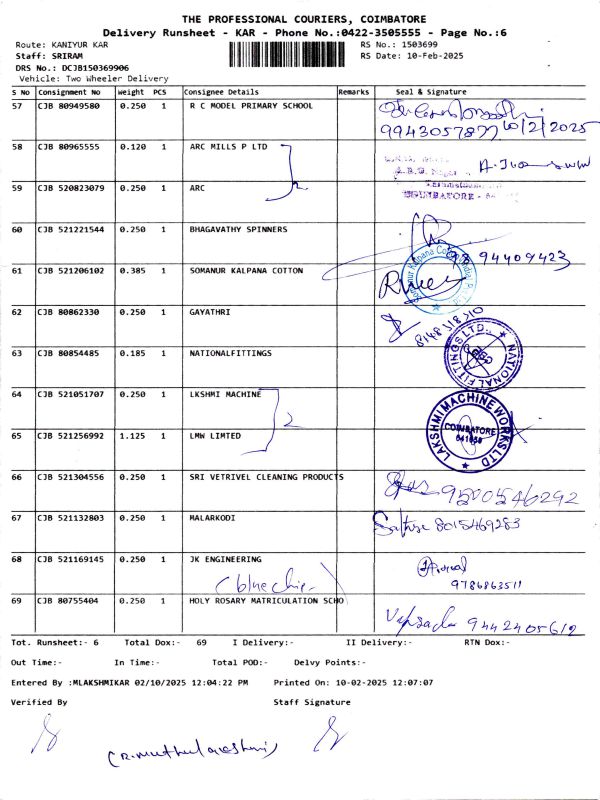 THE PROFESSIONAL COURIERS, COIMBATORE
Delivery Runsheet - KAR - Phone No.:0422-3505555 - Page No.:6
Route: KANIYUR KAR RS No.: 1503699
Staff: SRIRAM RS Date: 10-Feb-2025
DRS No.: DCJB150369906
Vehicle: Two Wheeler Delivery
S No Consignment No Weight PCS Consignee Details Remarks Seal & Signature
57 CJB 80949580 0.250 1 R C MODEL PRIMARY SCHOOL
10/2/2025
58 CJB 80965555 0.120 1 ARC MILLS P LTD
59 CJB 520823079 0.250 1 ARC
COIMBATORE
60 CJB 521221544 0.250 1 BHAGAVATHY SPINNERS
94409423
61 CJB 521206102 0.385 1 SOMANUR KALPANA COTTON
62 CJB 80862330 0.250 1 GAYATHRI
63 CJB 80854485 0.185 1 NATIONALFITTINGS
NATIONAL FITTINGS LTD.
64 CJB 521051707 0.250 1 LKSHMI MACHINE
2
LAKSHMI MACHINE WORKS LTD
COIMBATORE
65 CJB 521256992 1.125 1 LMW LIMTED
66 CJB 521304556 0.250 1 SRI VETRIVEL CLEANING PRODUCTS
9500546292
67 CJB 521132803 0.250 1 MALARKODI
8015469283
68 CJB 521169145 0.250 1 JK ENGINEERING
9786863511
69 CJB 80755404 0.250 1 HOLY ROSARY MATRICULATION SCHO
9442405612
Tot. Runsheet:- 6 Total Dox:- 69 I Delivery:- II Delivery:- RTN Dox:-
Out Time:- In Time:- Total POD:- Delvy Points:-
Entered By :MLAKSHMIKAR 02/10/2025 12:04:22 PM Printed On: 10-02-2025 12:07:07
Verified By Staff Signature